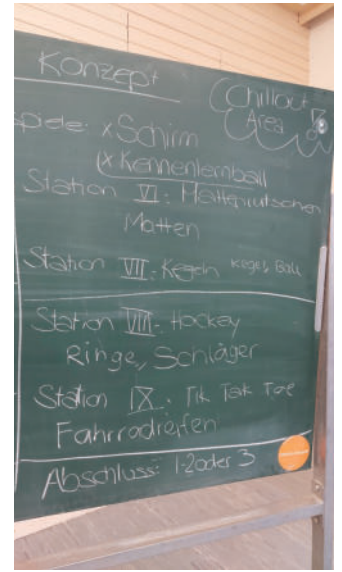 Konzept
Chillout
Area
spiele: x Schirm
(x Kennenlernball
Station VI: Mattenrutschen
Matten
Station VII: Kegeln Kegel, Ball
Station VIII: Hockey
Ringe, Schläger
Station IX: Tik Tak Toe
Fahrradreifen
Abschluss: 1-2 oder 3